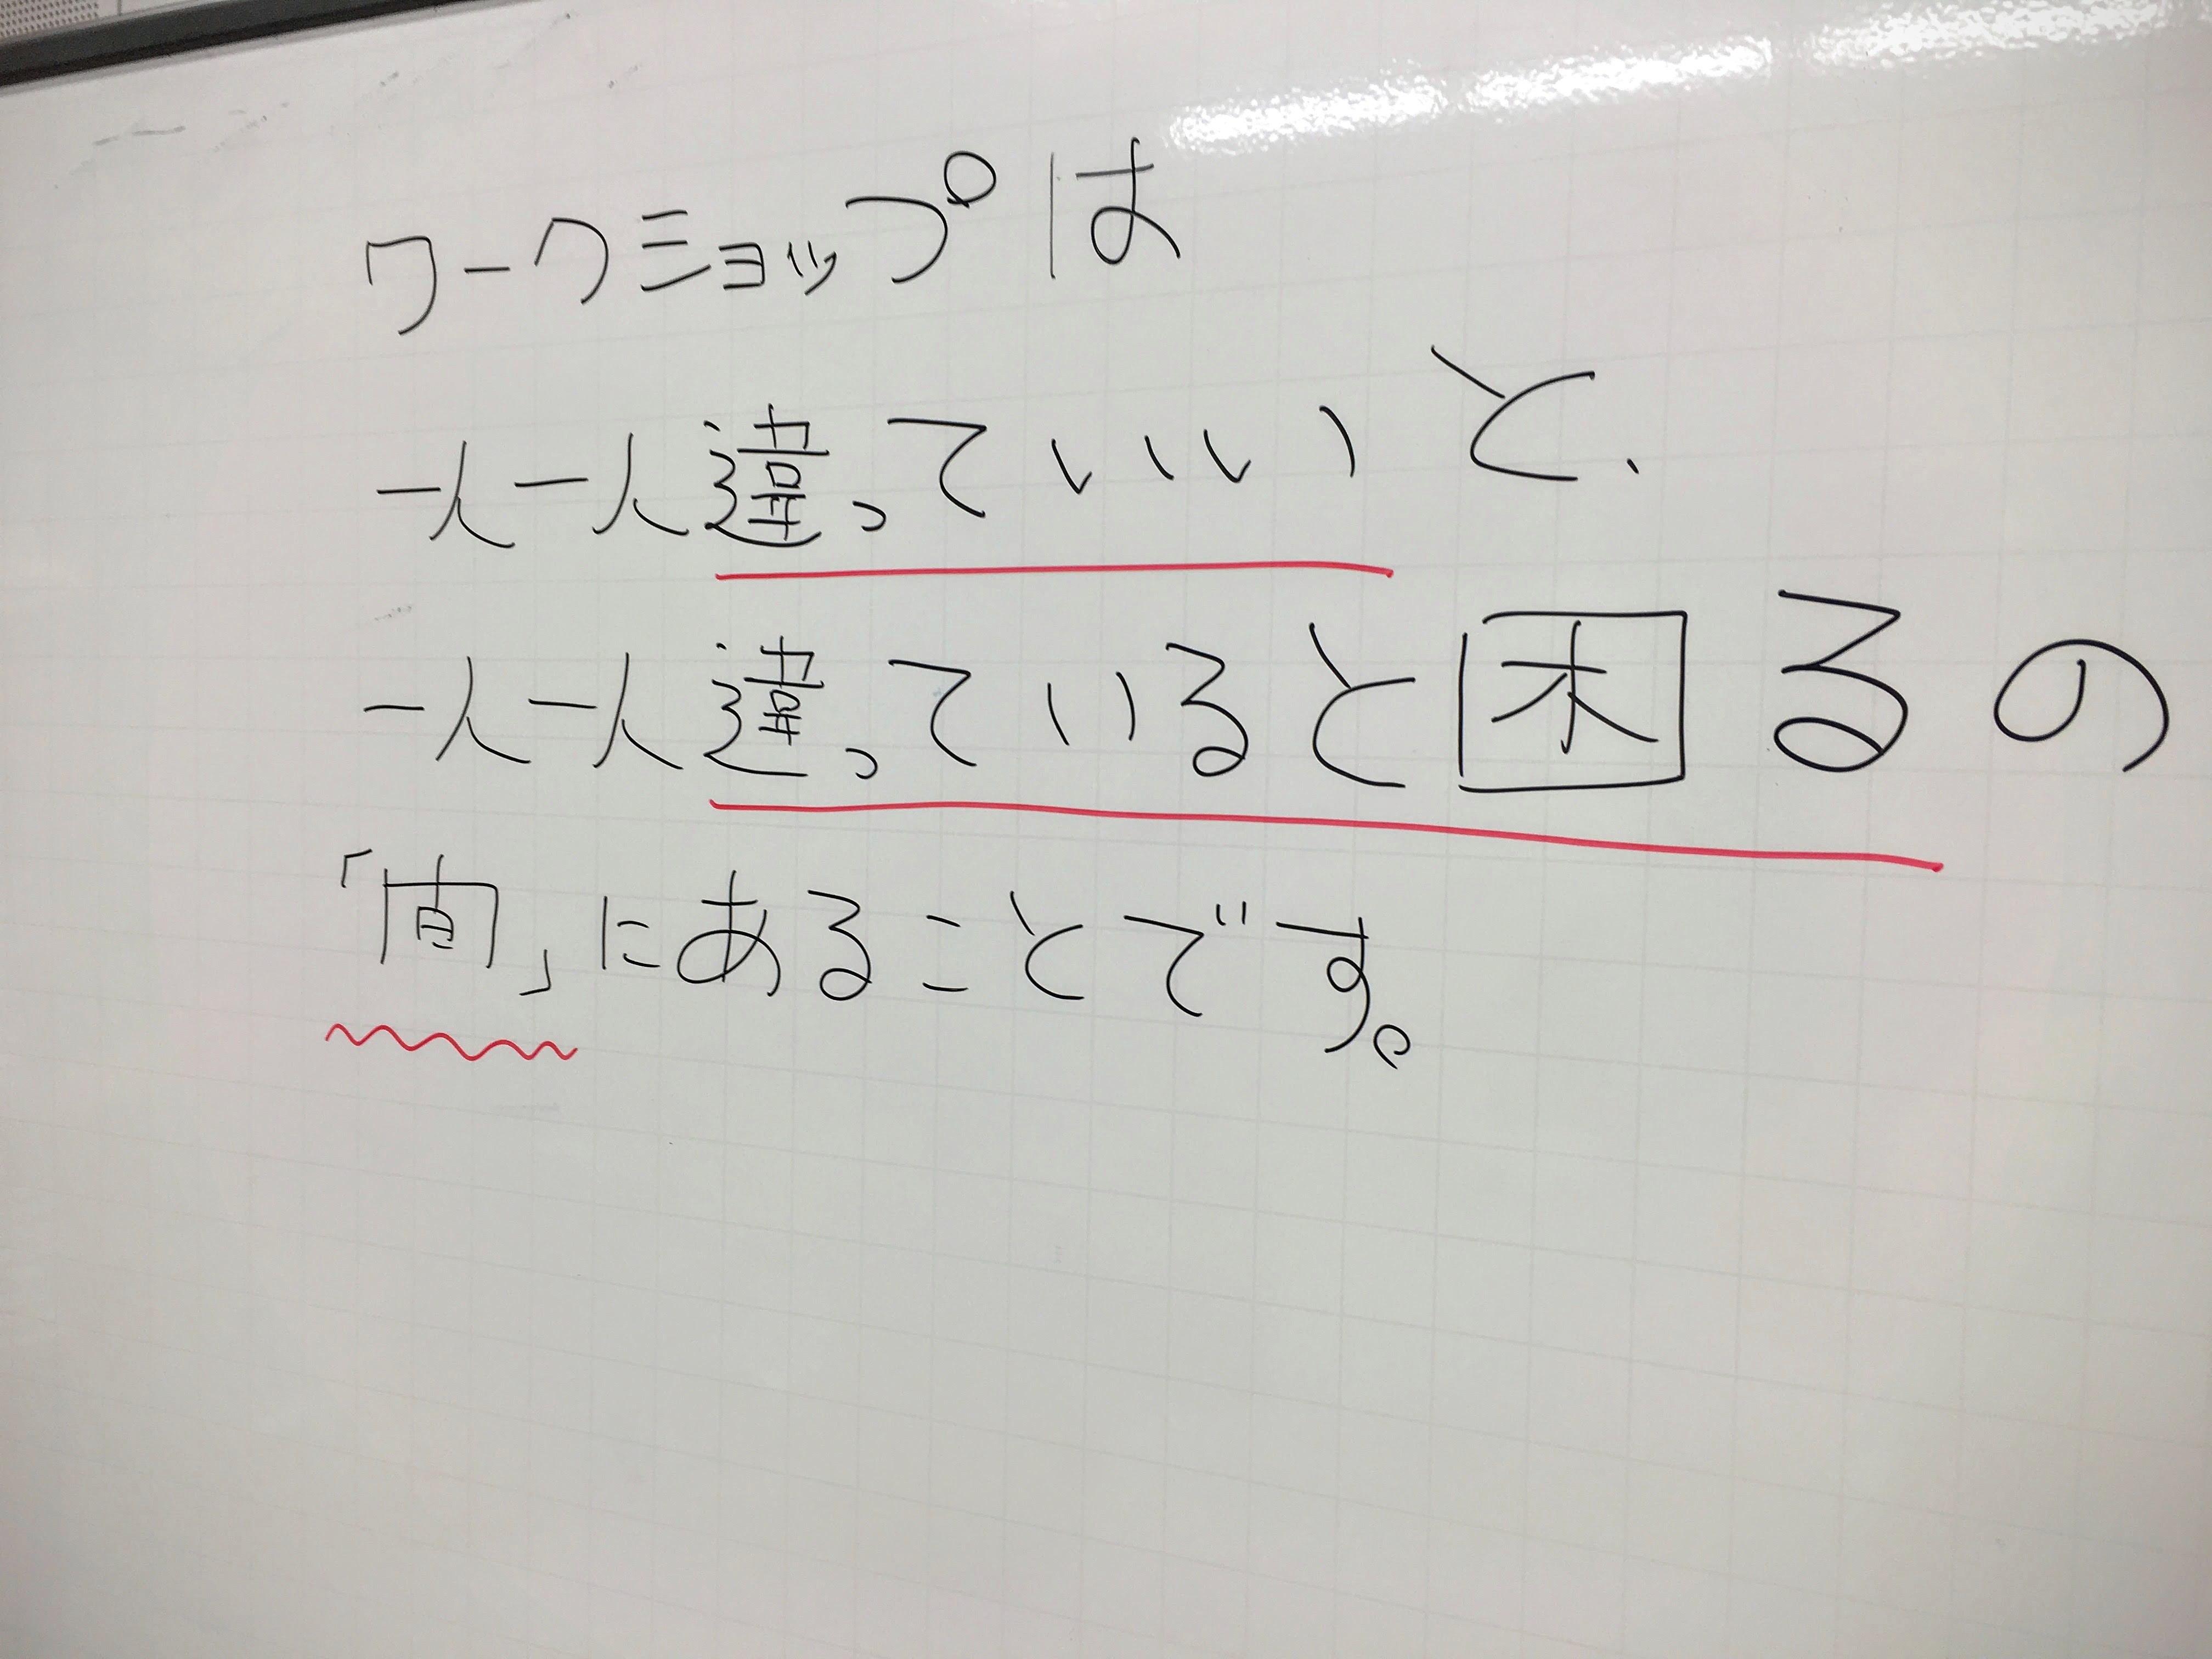 ワークショップは
一人一人違っていいと、
一人一人違っていると困るの
「間」にあることです。